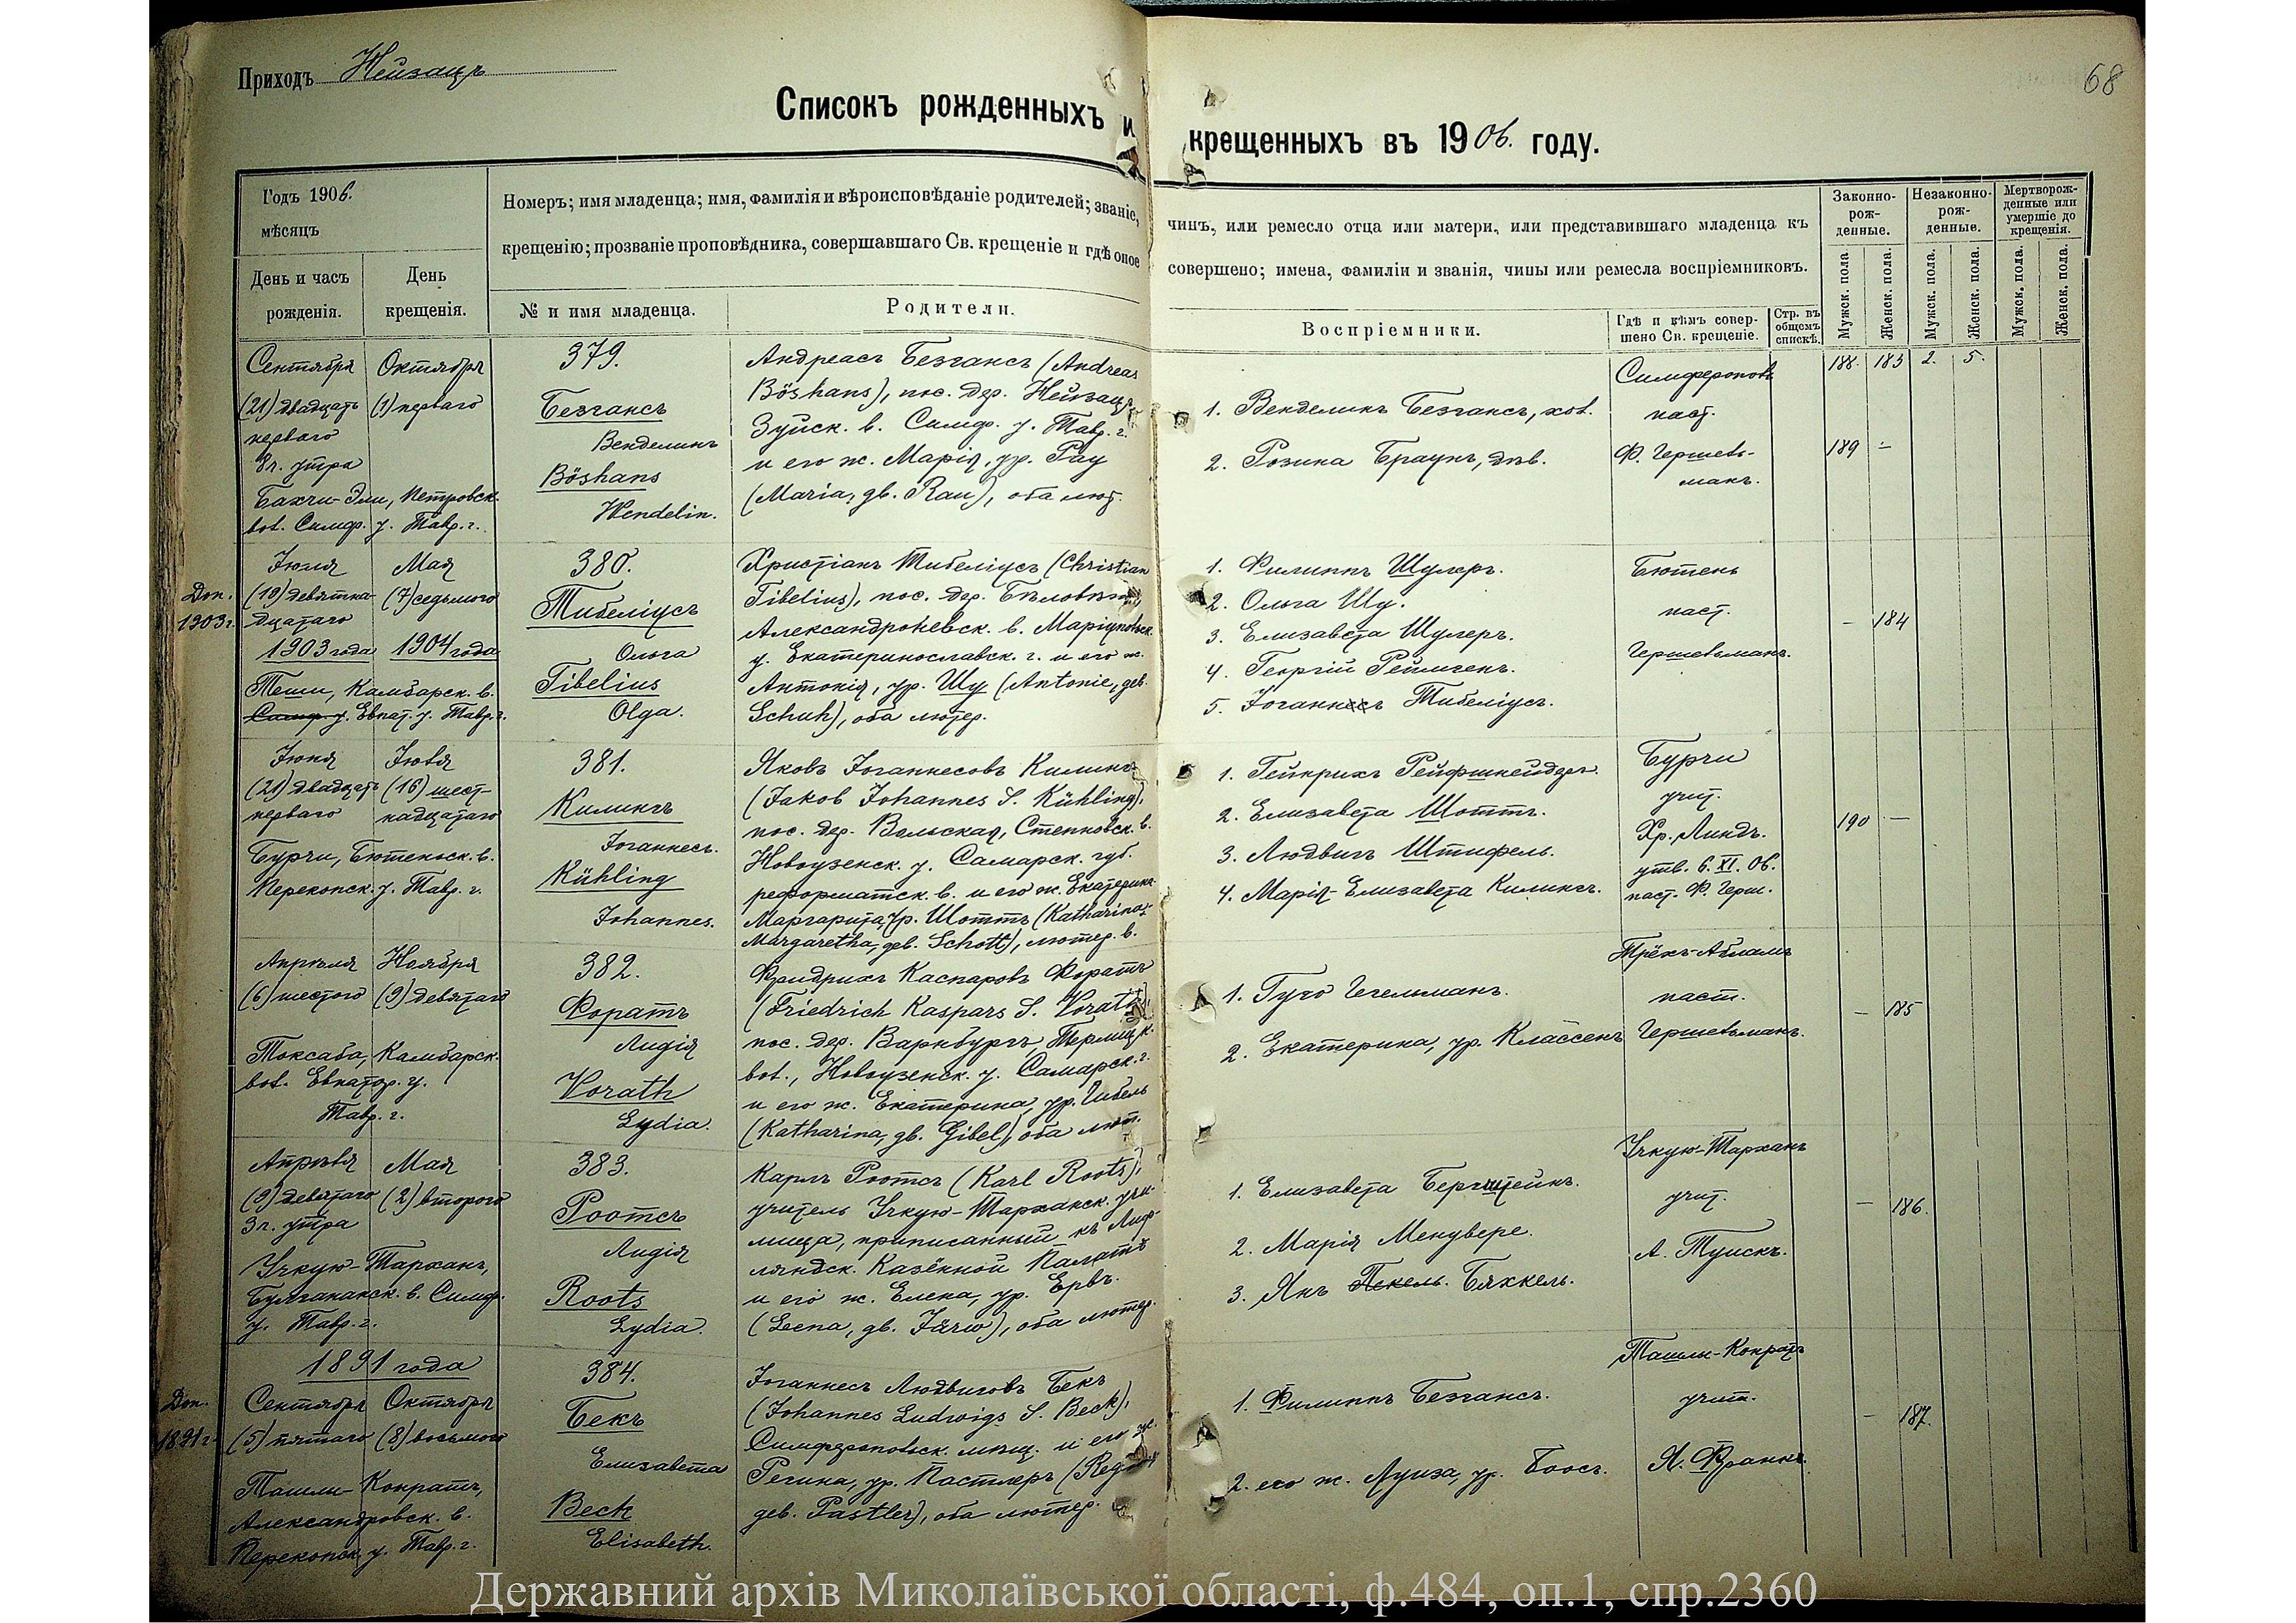 Приходъ Нейзацъ
68
Списокъ рожденныхъ и крещенныхъ въ 1906. году.
Годъ 1906.
мѣсяцъ
День и часъ рожденія.
День крещенія.
Номеръ; имя младенца; имя, фамилія и вѣроисповѣданіе родителей; званіе, чинъ, или ремесло отца или матери, или представившаго младенца къ
крещенію; прозваніе проповѣдника, совершавшаго Св. крещеніе и гдѣ оное совершено; имена, фамиліи и званія, чины или ремесла воспріемниковъ.
№ и имя младенца.
Родители.
Воспріемники.
Гдѣ и кѣмъ совершено Св. крещеніе.
Стр. въ общемъ спискѣ.
Законно-рож-денные.
Незаконно-рож-денные.
Мертворож-денные или умершіе до крещенія.
Мужск. пола
Женск. пола.
Мужск. пола.
Женск. пола
Мужск. пола
Женск. пола.
Сентября
(21) двадцать
перваго
8 ч. утра
Октября
(1) перваго
Бахчи-Эли, Петровск.
вол. Симф. у. Тавр. г.
379.
Безгансъ
Венделинъ
Böshans
Wendelin.
Андреасъ Безгансъ (Andreas
Böshans), пос. дер. Нейзацъ
Зуйск. в. Симф. у. Тавр. г.
и его ж. Марія, ур. Рау
(Maria, gb. Rau), оба лют.
1. Венделинъ Безгансъ, хол.
2. Розина Браунъ, дѣв.
Симферополь
паст.
Ф. Гершель-
манъ.
188. 183 2. 5.
189 -
Доп.
1903 г.
Іюля
(19) девятна-
дцатаго
1903 года
Мая
(7) седьмого
1904 года
Теши, Камбарск. в.
Симф. у. Евпат. у. Тавр. г.
380.
Тибеліусъ
Ольга
Tibelius
Olga.
Христіанъ Тибеліусъ (Christian
Tibelius), пос. дер.
Александроневск. в. Маріупольск.
у. Екатеринославск. г. и его ж.
Антонія, ур. Шу (Antonie, geb.
Schuh), оба лютер.
1. Филиппъ Шулеръ.
2. Ольга Шу.
3. Елизавета Шулеръ.
4. Георгій Реймгенъ.
5. Іоганнесъ Тибеліусъ.
Бютень
паст.
Гершельманъ.
- 184
Іюня
(21) двадцать
перваго
Іюля
(16) шест-
надцатаго
Бурчи, Бютеньск. в.
Перекопск. у. Тавр. г.
381.
Килингъ
Іоганнесъ.
Kühling
Johannes.
Яковъ Іоганнесовъ Килингъ
(Jakob Johannes S. Kühling),
пос. дер. Вольская, Степновск. в.
Новоузенск. у. Самарск. губ.
реформатск. в. и его ж. Екатерина
Маргарита, ур. Шоттъ (Katharina-
Margaretha, geb. Schott), лютер. в.
1. Гейнрихъ Рейфшнейдеръ.
2. Елизавета Шоттъ.
3. Людвигъ Штифель.
4. Марія-Елизавета Килингъ.
Бурчи
учит.
Хр. Линдъ.
утв. 6. XI. 06.
паст. Ф. Герш.
190 -
Апрѣля
(6) шестого
Ноября
(9) девятаго
Токсаба, Камбарск.
вол. Евпатор. у.
Тавр. г.
382.
Форатъ
Лидія
Vorath
Lydia.
Фридрихъ Каспаровъ Форатъ
(Friedrich Kaspars S. Vorath)
пос. дер. Варнбургъ,
вол., Новоузенск. у. Самарск. г.
и его ж. Екатерина, ур. Гибель
(Katharina, gb. Gibel), оба лют.
1. Гуго Гегельманъ.
2. Екатерина, ур. Классенъ
Трёхъ-Абламъ
паст.
Гершельманъ.
- 185
Апрѣля
(9) девятаго
3 ч. утра
Мая
(2) второго
Учкую-Тарханъ,
Булганакск. в. Симф.
у. Тавр. г.
383.
Роотсъ
Лидія
Roots
Lydia.
Карлъ Роотсъ (Karl Roots),
учитель Учкую-Тарханск. учи-
лища, приписанный къ Лиф-
ляндск. Казённой Палатѣ
и его ж. Елена, ур. Ервъ.
(Leena, gb. Järw), оба лютер.
1. Елизавета Бергштейнъ.
2. Марія Менувере.
3. Янъ Пекель. Бяккель.
Учкую-Тарханъ
учит.
А. Туискъ.
- 186.
Доп.
1891 г.
1891 года
Сентября
(5) пятаго
Октября
(8) восьмого
Ташлы-Конратъ,
Александровск. в.
Перекопск. у. Тавр. г.
384.
Бекъ
Елизавета
Beck
Elisabeth.
Іоганнесъ Людвиговъ Бекъ
(Johannes Ludwigs S. Beck),
Симферопольск. мѣщ. и его ж.
Регина, ур. Пастлеръ
geb. Pastler), оба лютер.
1. Филиппъ Безгансъ.
2. его ж. Луиза, ур. Боосъ.
Ташлы-Конратъ
учит.
Я. Франкъ.
- 187.
Державний архів Миколаївської області, ф.484, оп.1, спр.2360